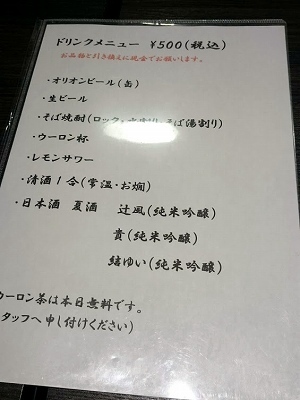 ドリンクメニュー ¥500(税込)
お品物と引き換えに現金でお願いします。
・オリオンビール(缶)
・生ビール
・そば焼酎(ロック・水割り・そば湯割り)
・ウーロン杯
・レモンサワー
・清酒1合(常温・お燗)
・日本酒 夏酒 辻風(純米吟醸)
貴(純米吟醸)
結ゆい(純米吟醸)
ウーロン茶は本日無料です。
タッフへ申し付けください)